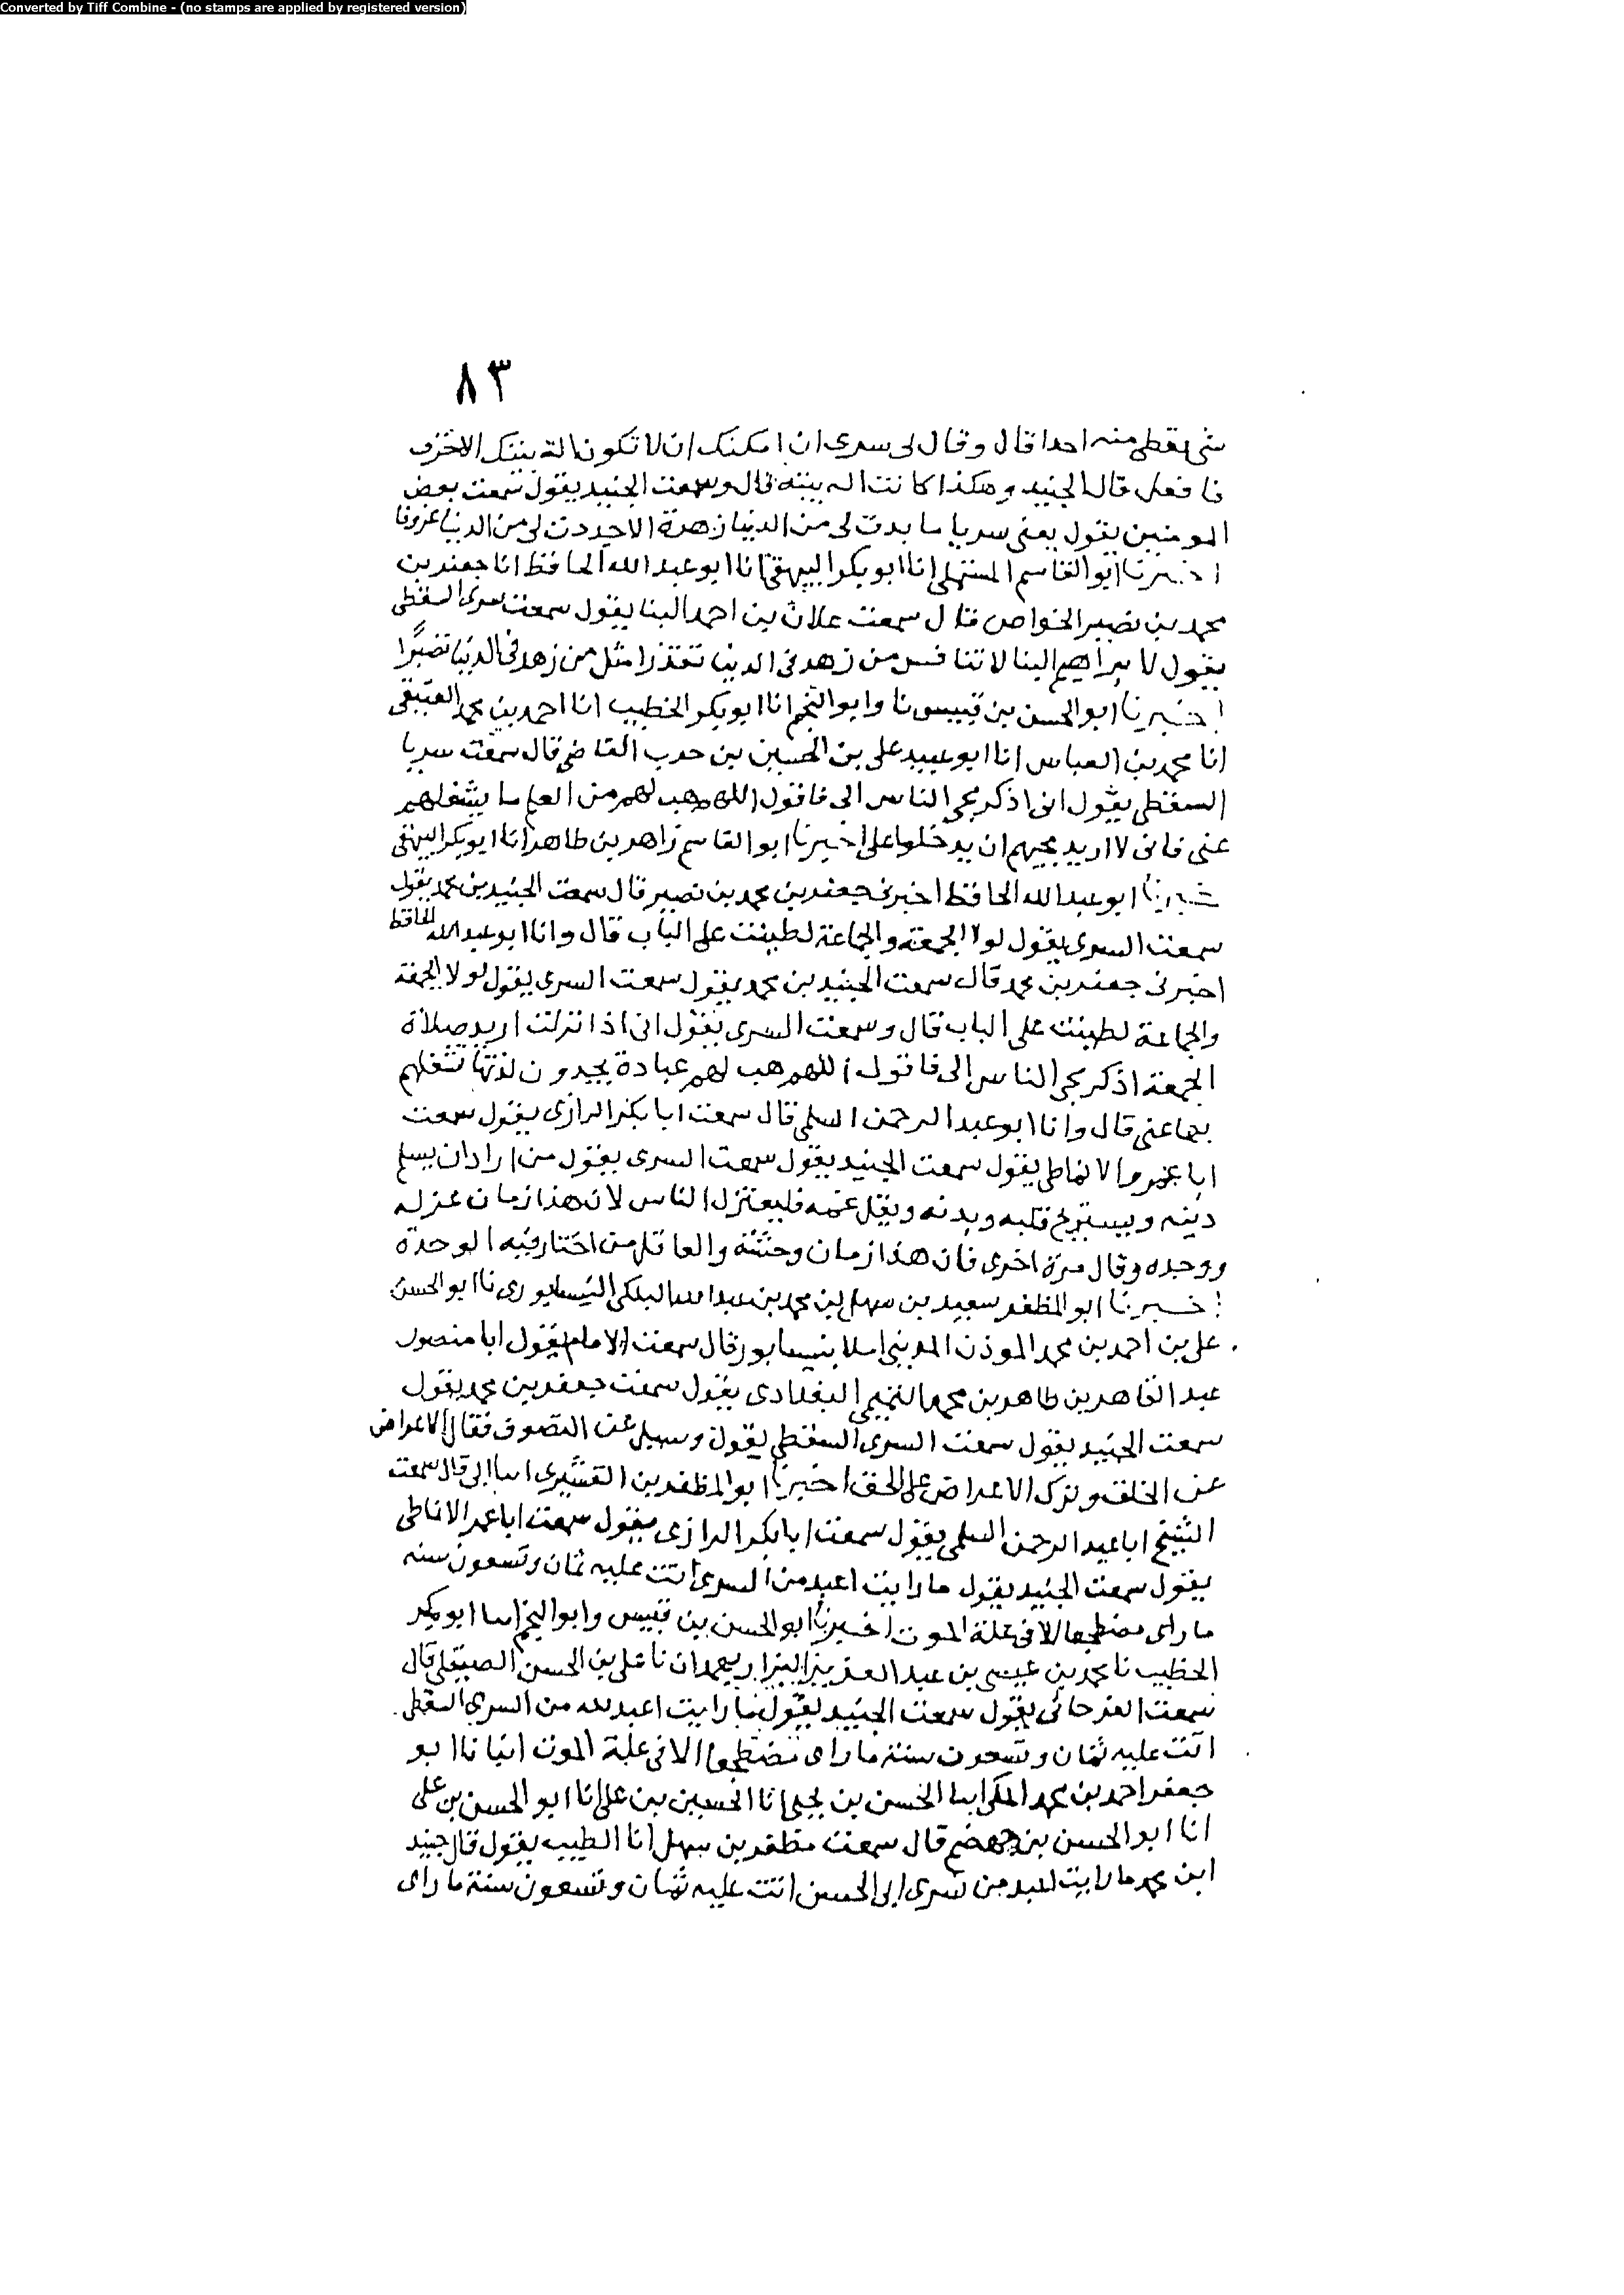 Converted by Tiff Combine - (no stamps are applied by registered version)
٨٣
شي يعطي منه احدا قال وقال لي سرى ان امكنك ان لا تكون الة بيتك الا خزف
فافعل قال الجنيد وهكذا كانت الة بيته قال وسمعت الجنيد يقول سمعت بعض
المومنين يقول يعني سريا ما بدت لي من الدنيا زهرة الا جددت لي من الدنيا عزوفا
اخبرنا ابو القاسم المستملي انا ابو بكر البيهقي انا ابو عبد الله الحافظ انا جعفر بن
محمد بن نصير الخواص قال سمعت علان بن احمد البنا يقول سمعت سرى السقطي
يقول لابراهيم البنا لا تنافس من زهد في الدنيا تقذرا مثل من زهد في الدنيا تصبرا
اخبرنا ابو الحسن بن قبيس نا وابو النجم انا ابو بكر الخطيب انا احمد بن محمد العتيقي
انا محمد بن العباس انا ابو عبيد علي بن الحسين بن حرب القاضي قال سمعت سريا
السقطي يقول اني اذكر مجي الناس الي فاقول اللهم هب لهم من العلم ما يشغلهم
عني فاني لا اريد مجيهم ان يدخلوا علي اخبرنا ابو القاسم زاهر بن طاهر انا ابو بكر البيهقي
اخبرنا ابو عبد الله الحافظ اخبرني جعفر بن محمد بن نصير قال سمعت الجنيد بن محمد يقول
سمعت السرى يقول لولا الجمعة والجماعة لطينت على الباب قال وانا ابو عبد الله الحافظ
اخبرني جعفر بن محمد قال سمعت الجنيد بن محمد يقول سمعت السرى يقول لولا الجمعة
والجماعة لطينت على الباب قال وسمعت السرى يقول اني اذا نزلت اريد صلاة
الجمعة اذكر مجي الناس الي فاقول اللهم هب لهم عبادة يجدون لذتها تشغلهم
بها عني قال وانا ابو عبد الرحمن السلمي قال سمعت ابا بكر الرازى يقول سمعت
ابا عمرو الانماطي يقول سمعت الجنيد يقول سمعت السرى يقول من اراد ان يسلم
دينه ويستريح قلبه وبدنه ويقل غمه فليعتزل الناس لان هذا زمان عزلة
ووحده وقال مرة اخرى فان هذا زمان وحشة والعاقل من اختار فيه الوحدة
اخبرنا ابو المظفر سعيد بن سهل بن محمد بن عبد الله الفلكي النيسابورى نا ابو الحسن
علي بن احمد بن محمد الموذن المديني املا بنيسابور قال سمعت الامام يقول ابا منصور
عبد القاهر بن طاهر بن محمد التميمي البغدادى يقول سمعت جعفر بن محمد يقول
سمعت الجنيد يقول سمعت السرى السقطي يقول وسيل عن التصوف فقال الاعراض
عن الخلق وترك الاعراض على الحق اخبرنا ابو المظفر بن القشيرى انبا ابي قال سمعت
الشيخ ابا عبد الرحمن السلمي يقول سمعت ابا بكر الرازى يقول سمعت ابا عمر الانماطي
يقول سمعت الجنيد يقول ما رايت اعبد من السرى اتت عليه ثمان وتسعون سنه
ما راى مضطجعا الا في علة الموت اخبرنا ابو الحسن بن قبيس وابو النجم انبا ابو بكر
الخطيب نا محمد بن عيسى بن عبد العزيز البزاز بهمدان نا علي بن الحسن الصيقلي قال
سمعت الفرحاني يقول سمعت الجنيد يقول ما رايت اعبد لله من السرى السقطي
اتت عليه ثمان وتسعون سنة ما راى مضطجعا الا في علة الموت انبانا ابو
جعفر احمد بن محمد المكي انبا الحسن بن يحيى انا الحسين بن علي انا ابو الحسن بن علي
انا ابو الحسن بن جهضم قال سمعت مظفر بن سهل انا الطيب يقول قال جنيد
ابن محمد ما رايت اعبد من سرى ابي الحسن اتت عليه ثمان وتسعون سنة ما راى